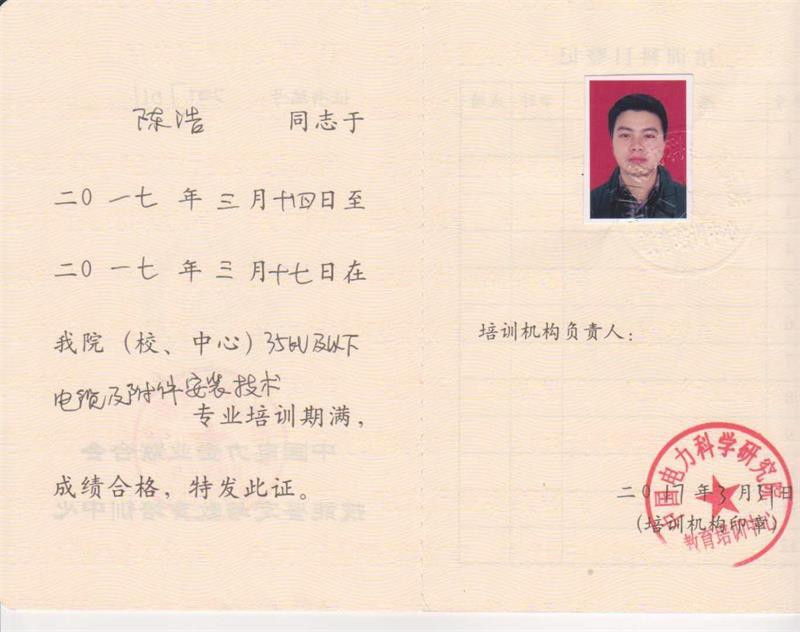 陈浩 同志于
二〇一七年三月十四日至
二〇一七年三月十七日在
我院（校、中心）35kV及以下
电缆及附件安装技术
专业培训期满，
成绩合格，特发此证。
培训机构负责人：
中国电力科学研究院
二〇17年3月31日
（培训机构印章）
教育培训中心